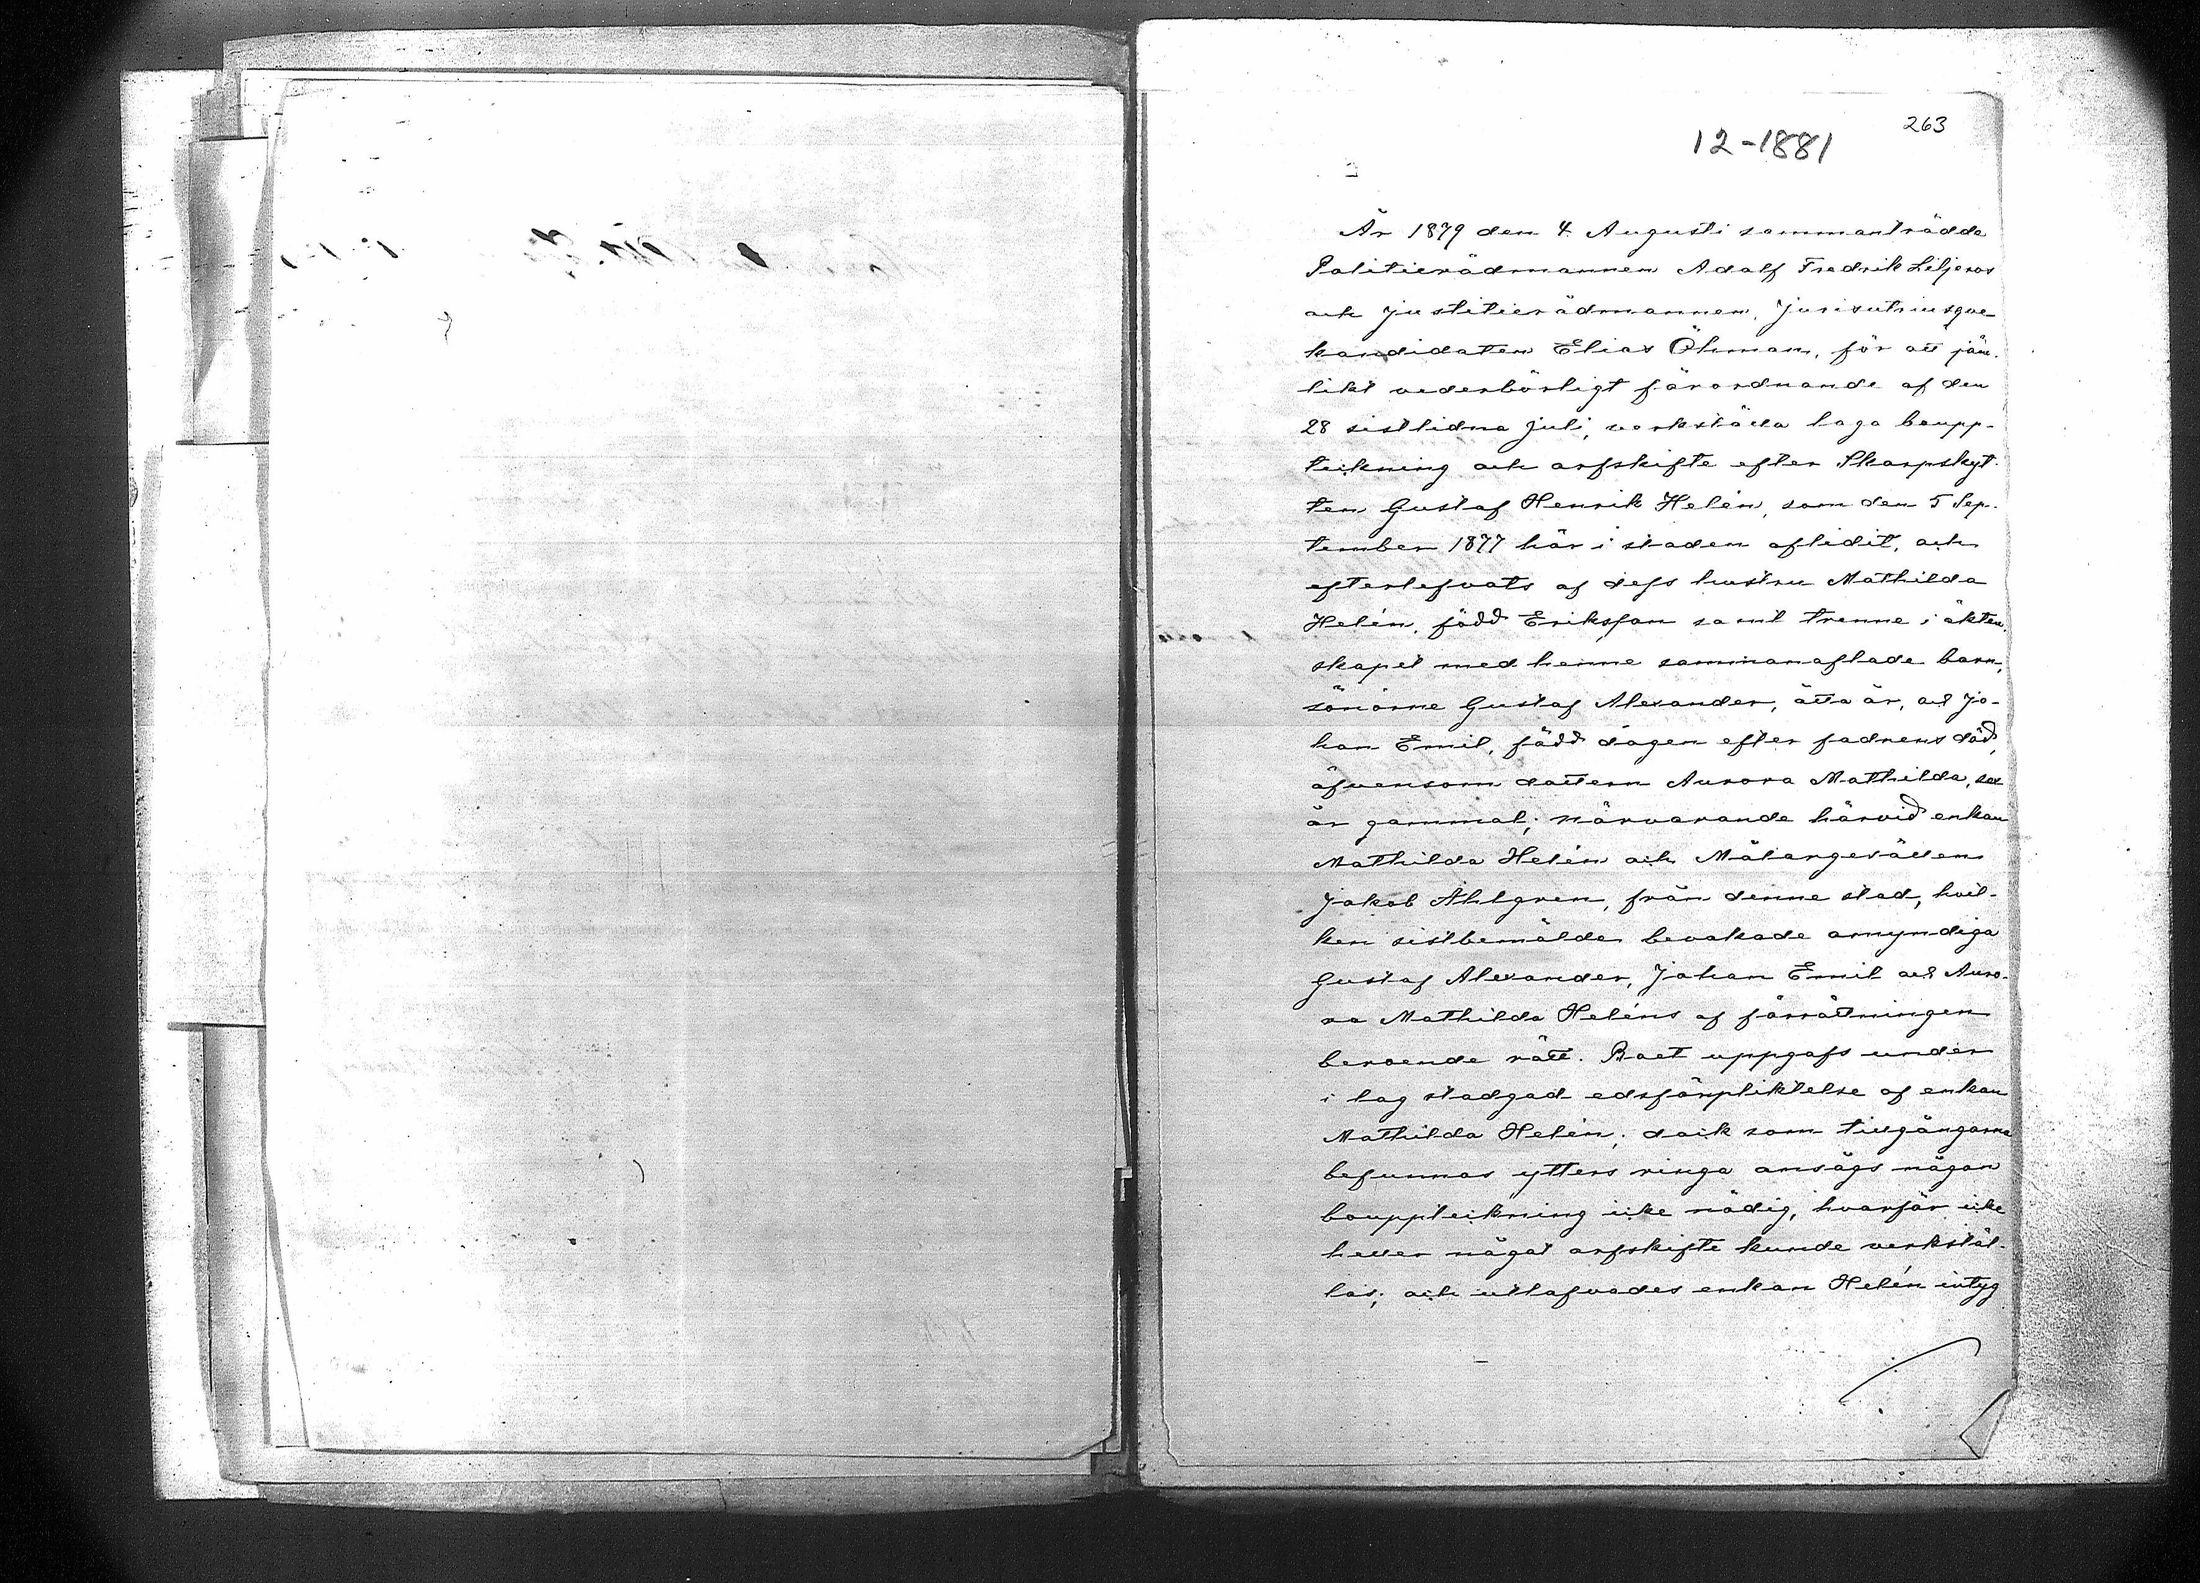 263
12-1881
År 1879 den 4 Augusti sammanträdde
Politierådmannen Adolf Fredrik Liljeros
och Justitierådmannen, Jurisutriusque-
kandidaten Elias Öhman, för att jäm-
likt vederbörligt förordnande af den
28 sistlidna Juli, verkställa laga boupp-
teckning och arfskifte efter Skarpskyt-
ten Gustaf Henrik Helén, som den 5 Sep-
tember 1877 här i staden aflidit, och
efterlefvats af dess hustru Mathilda
Helén, född Eriksson samt trenne i äkten-
skapet med henne sammanaflade barn,
sönörne Gustaf Alexander, åtta år, och Jo-
han Emil, född dagen efter fadrens död,
äfvensom dottern Aurora Mathilda, sex
år gammal; närvarande härvid enkan
Mathilda Helén och Målaregesällen
Jakob Åhlgren, från denne stad, hvil-
ken sistbemälde bevakade omyndiga
Gustaf Alexander, Johan Emil och Auro-
ra Mathilda Heléns af förrättningen
beroende rätt. Boet uppgafs under
i lag stadgad edsförpliktelse af enkan
Mathilda Helén; dock som tillgångarne
befunnos ytterst ringa ansågs någon
bouppteckning icke nödig, hvarför icke
heller något arfskifte kunde verkstäl-
las; och utlofvades enkan Helén intyg